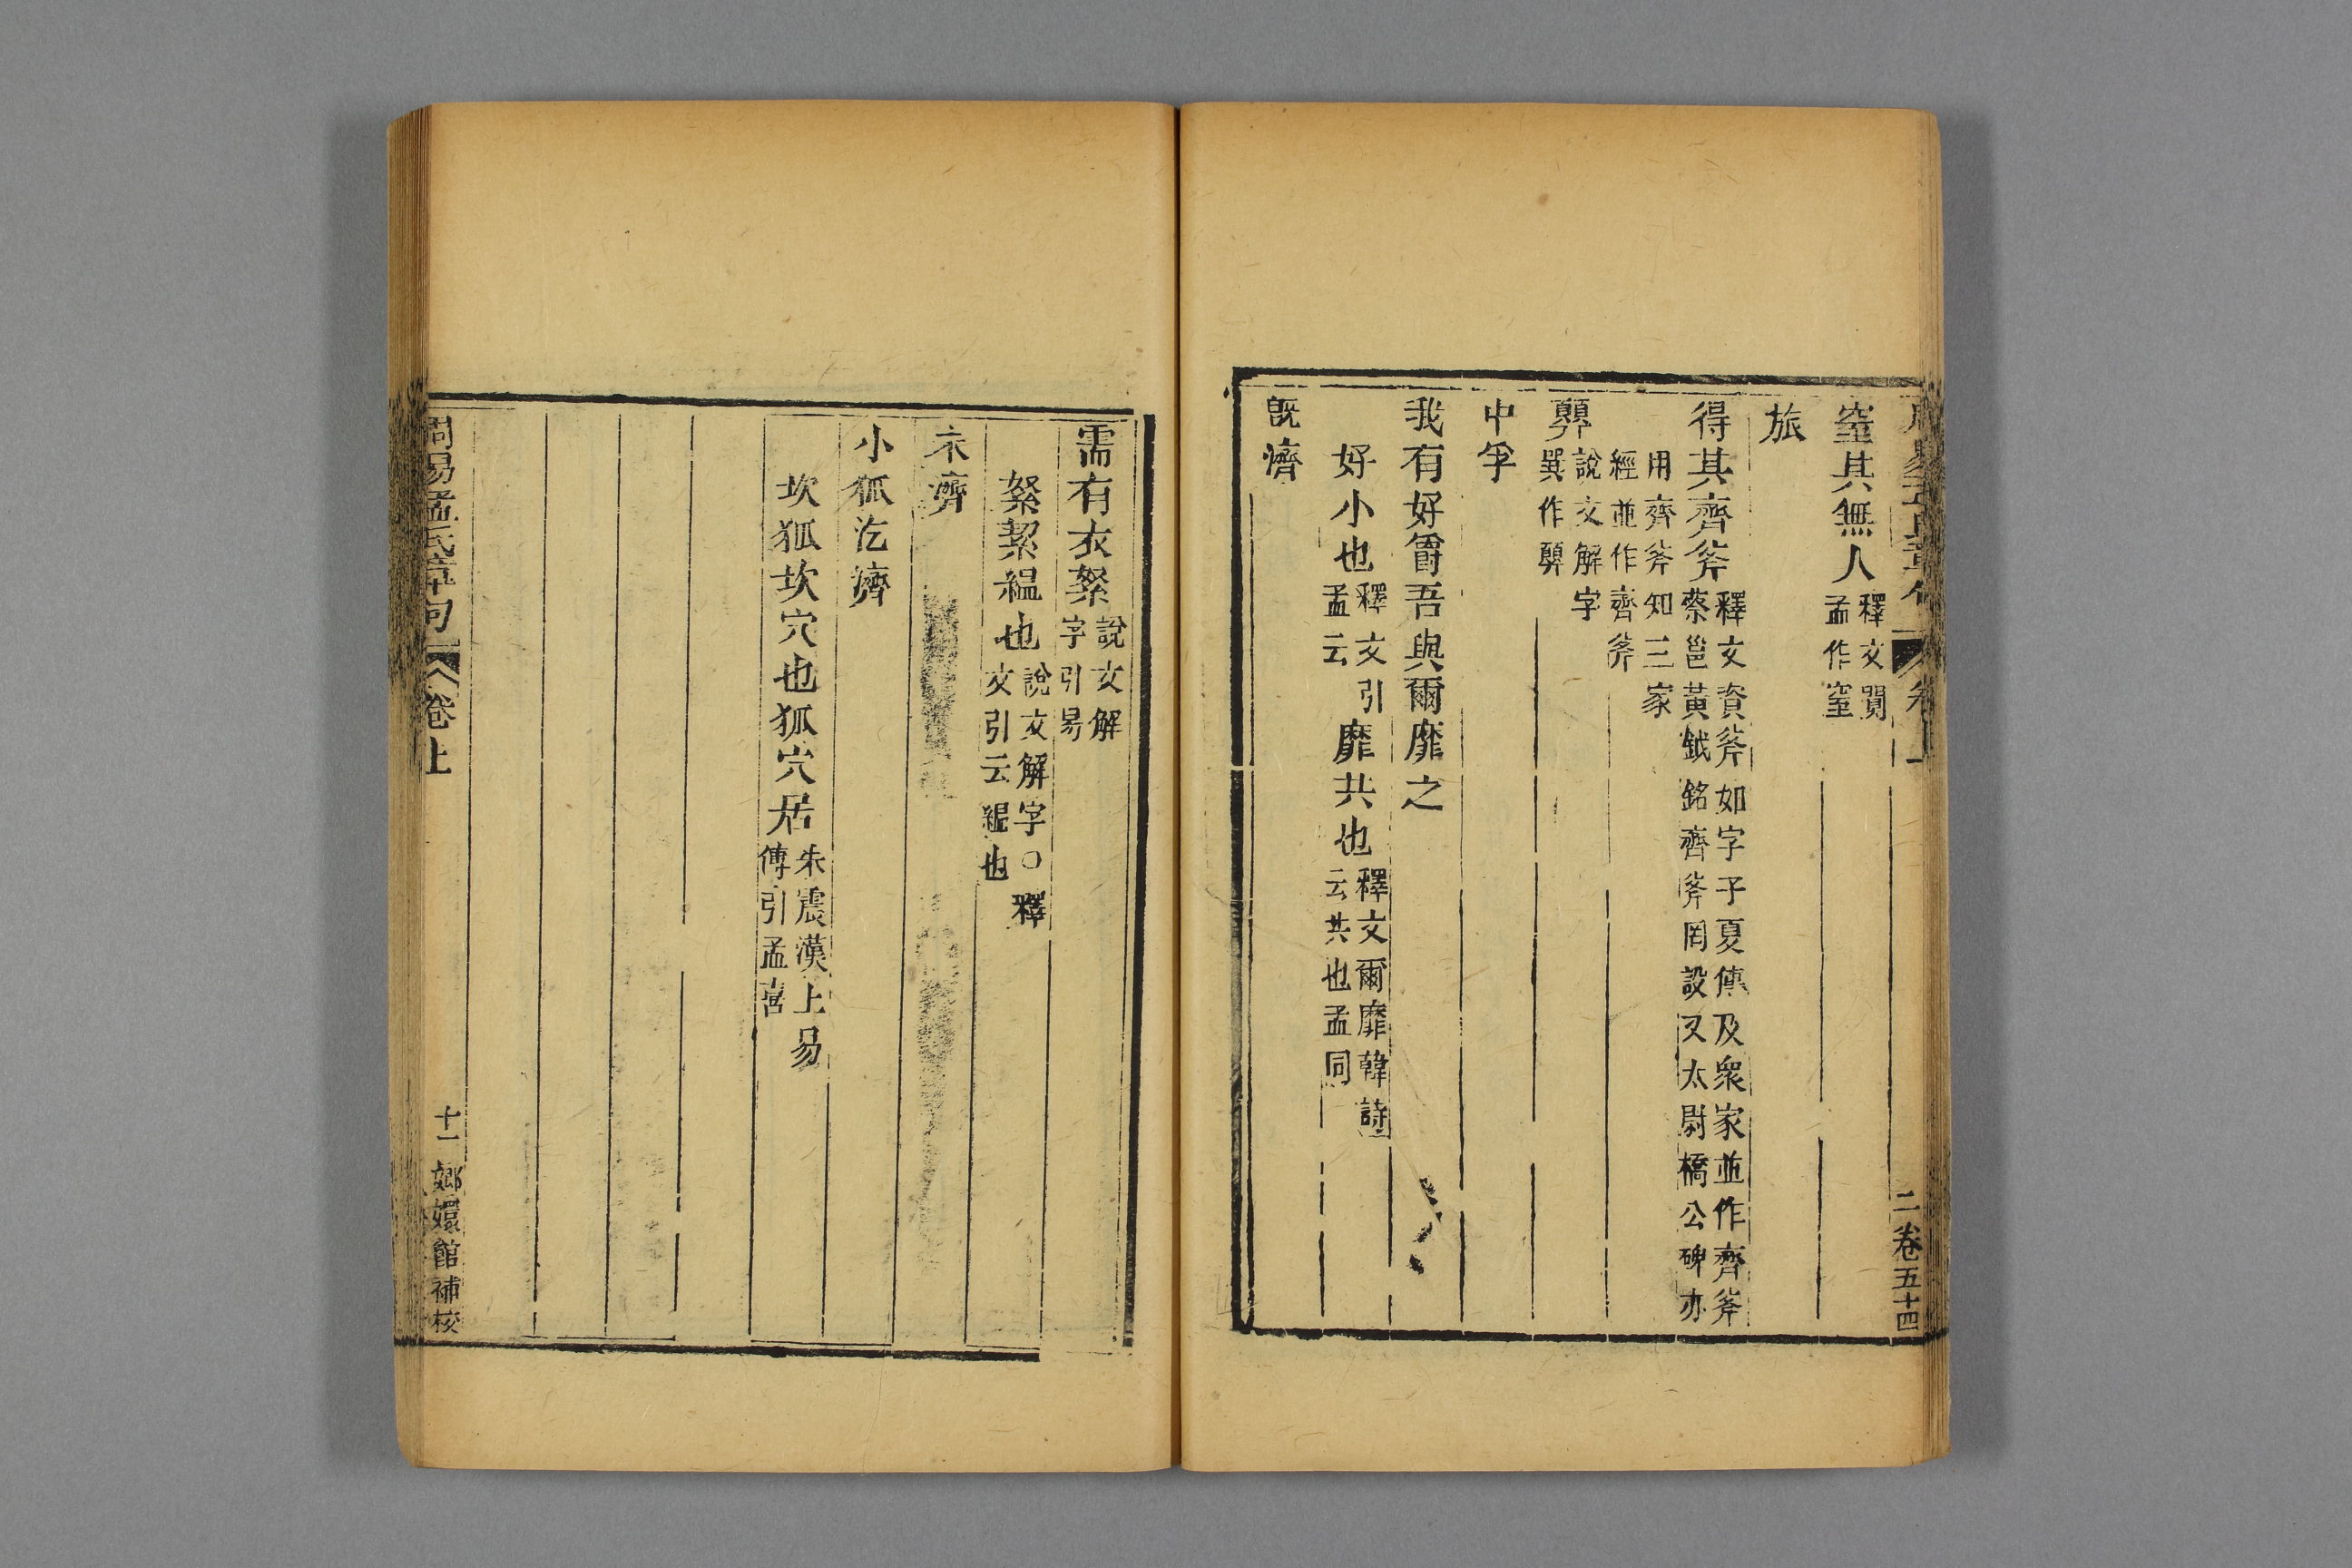 窒其無人釋文闃孟作窒
旅
得其齊斧釋文資斧如字子夏傳及衆家並作齊斧蔡邕黃鉞銘齊斧罔設又太尉橋公碑亦
用齊斧知三家經並作齊斧
顨說文解字巽作顨
中孚
我有好爵吾與爾靡之
好小也釋文引孟云靡共也釋文爾靡韓詩云共也孟同
旣濟
二
卷五十四
需有衣絮說文解字引易
絮絜縕也說文解字○釋文引云縕也
未濟
小狐汔濟
坎狐坎穴也狐穴居朱震漢上易傳引孟喜
周易孟氏章句
卷上
十一
嫏嬛館補校